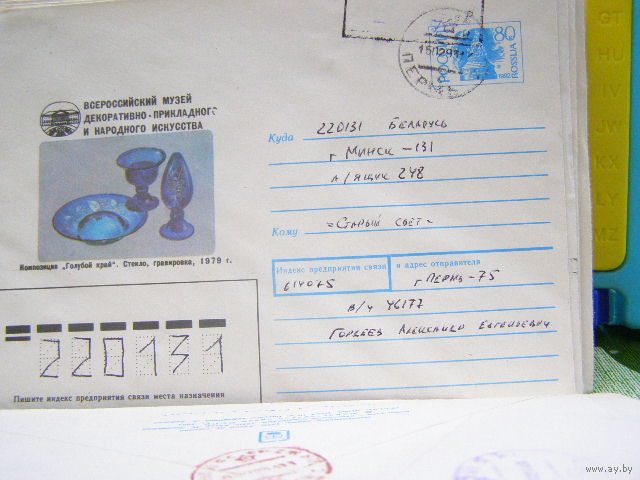 ВСЕРОССИЙСКИЙ МУЗЕЙ
ДЕКОРАТИВНО-ПРИКЛАДНОГО
И НАРОДНОГО ИСКУССТВА
Композиция „Голубой край". Стекло, гравировка, 1979 г.
80
ROSSIJA
1992
Куда 220131 БЕЛАРУСЬ
г МИНСК-131
А/ЯЩИК 248
Кому «СТАРЫЙ СВЕТ»
Индекс предприятия связи и адрес отправителя
614075 г ПЕРМЬ-75
В/Ч 46177
ГОРДЕЕВ АЛЕКСАНДР ЕВГЕНЬЕВИЧ
220131
Пишите индекс предприятия связи места назначения
GT
HU
IV
JK
KX
LY
MZ
www.ay.by